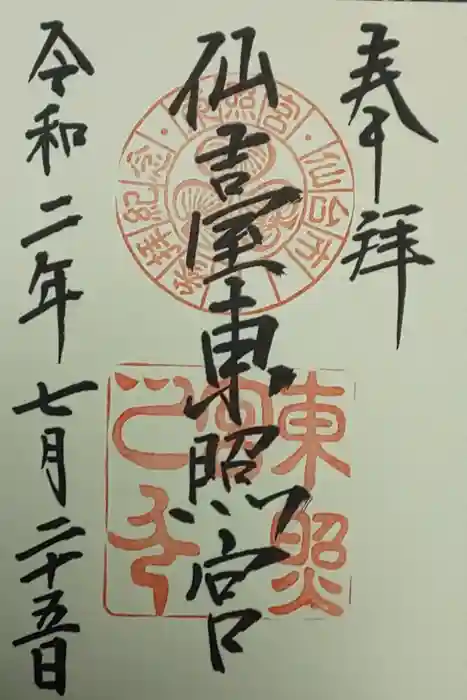 奉拝
仙臺東照宮
令和二年七月二十五日
東照宮・仙台市
参拝紀念
東照
宮